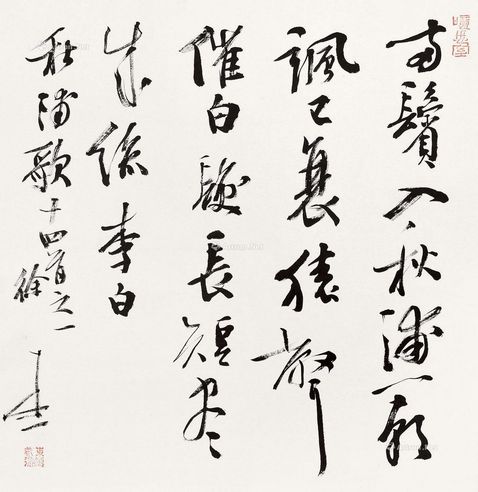 两鬢入秋浦一朝
颯已衰猿聲
催白髮長短尽
成絲李白
秋浦歌十四首之一
徐